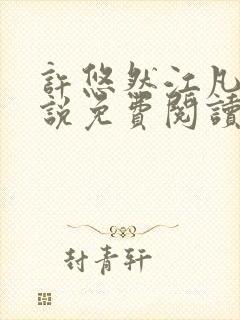 許悠然江凡
說免費閱讀
封青軒